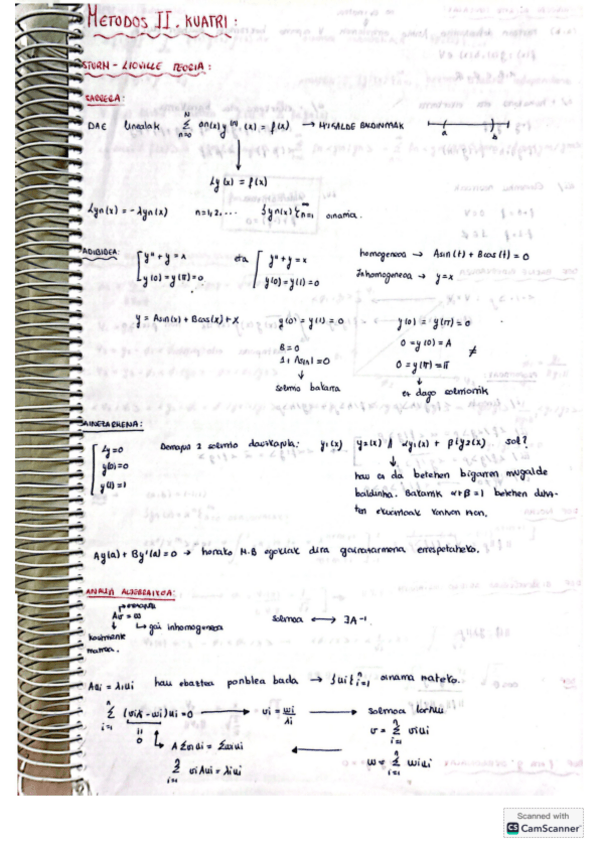 METODOS II. KUATRI:
STURM - LIOVILLE TEORIA:
SARRERA:
DAE linealak Σ_{n=0}^{N} an(x) y^(n)(x) = f(x) → MUGALDE BALDINTZAK
a b
Ly(x) = f(x)
Lyn(x) = -λyn(x) n=1,2,... {yn(x)}_{n=1}^{∞} oinarria.
ADIBIDEA: { y''+y=x y(0)=y(π)=0 eta { y''+y=x y(0)=y(1)=0
homogeneoa → Asin(t) + Bcos(t) = 0
Inhomogeneoa → y=x
y = Asin(x) + Bcos(x) + x y(0) = y(1) = 0 y(0) = y(π) = 0
B=0 0=y(0)=A
1+Asin1=0 0=y(π)=π ≠
↓ ↓
soluzio bakarra ez dago soluziorik
GAINEZARMENA:
{ Ly=0 y(0)=0 y(1)=1
Demagun 2 soluzio dauzkagula: y1(x) y2(x) αy1(x) + βy2(x) sol?
↓
hau ez da betetzen bigarren mugalde
baldintza. Bakarrik α+β=1 betetzen
Ay(a) + By'(a) = 0 → horrako M.B egokiak dira gainezarmena errespetatzeko.
ANALISI ALGEBRAIKOA:
Av = w → gai inhomogeneoa soluzioa ⟷ ∃A⁻¹
Aui = λiui hau ebaztea posible bada → {ui}_{i=1}^{n} oinarria
Σ_{i=1}^{n} (viλi - wi)ui = 0 → vi = wi/λi → soluzioa lortu
0 v = Σ_{i=1}^{n} viui
w = Σ_{i=1}^{n} wiui
Scanned with
CS CamScanner